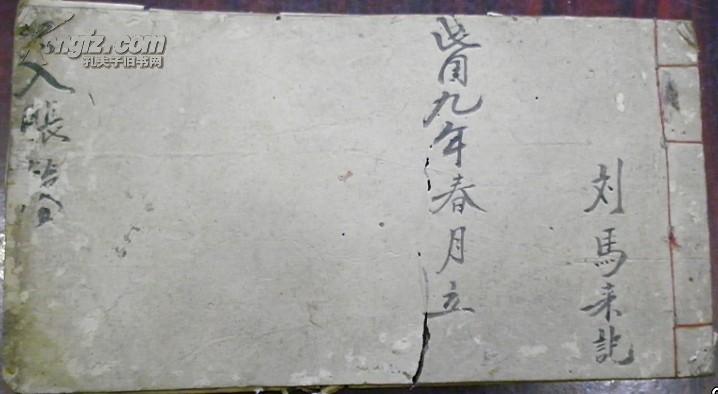 刘馬来記
民国九年春月立
入賬
kongfz.com
孔夫子旧书网